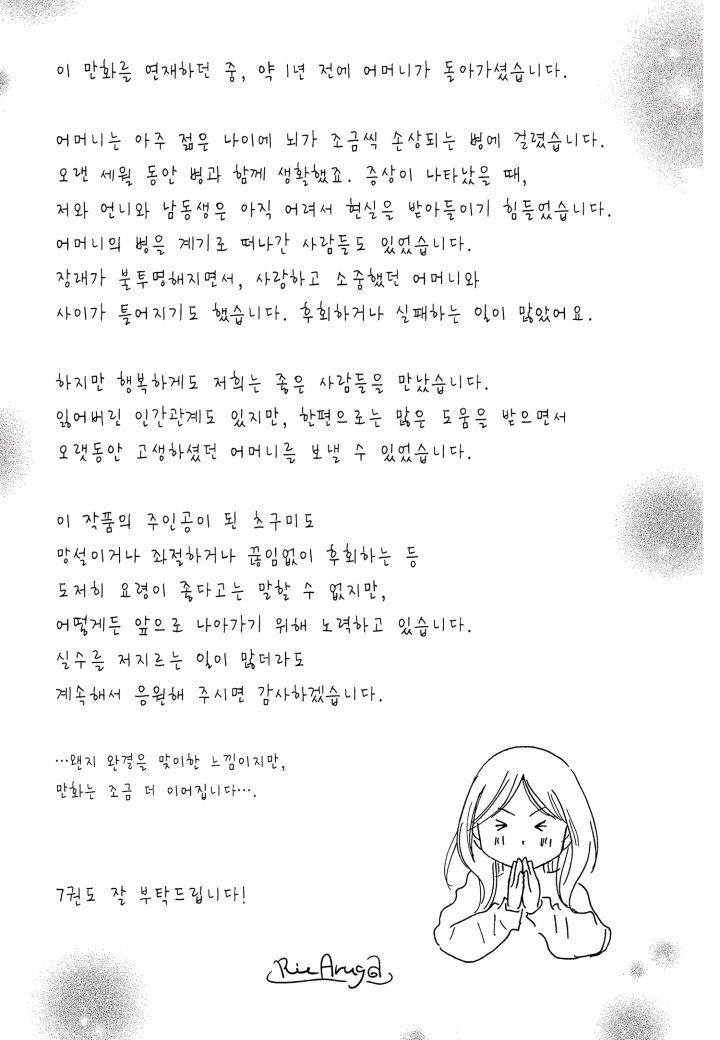 이 만화를 연재하던 중, 약 1년 전에 어머니가 돌아가셨습니다.
어머니는 아주 젊은 나이에 뇌가 조금씩 손상되는 병에 걸렸습니다.
오랜 세월 동안 병과 함께 생활했죠. 증상이 나타났을 때,
저와 언니와 남동생은 아직 어려서 현실을 받아들이기 힘들었습니다.
어머니의 병을 계기로 떠나간 사람들도 있었습니다.
장래가 불투명해지면서, 사랑하고 소중했던 어머니와
사이가 틀어지기도 했습니다. 후회하거나 실패하는 일이 많았어요.
하지만 행복하게도 저희는 좋은 사람들을 만났습니다.
잃어버린 인간관계도 있지만, 한편으로는 많은 도움을 받으면서
오랫동안 고생하셨던 어머니를 보낼 수 있었습니다.
이 작품의 주인공이 된 츠구미도
망설이거나 좌절하거나 끊임없이 후회하는 등
도저히 요령이 좋다고는 말할 수 없지만,
어떻게든 앞으로 나아가기 위해 노력하고 있습니다.
실수를 저지르는 일이 많더라도
계속해서 응원해 주시면 감사하겠습니다.
…왠지 완결을 맞이한 느낌이지만,
만화는 조금 더 이어집니다….
7권도 잘 부탁드립니다!
Rie Aruga